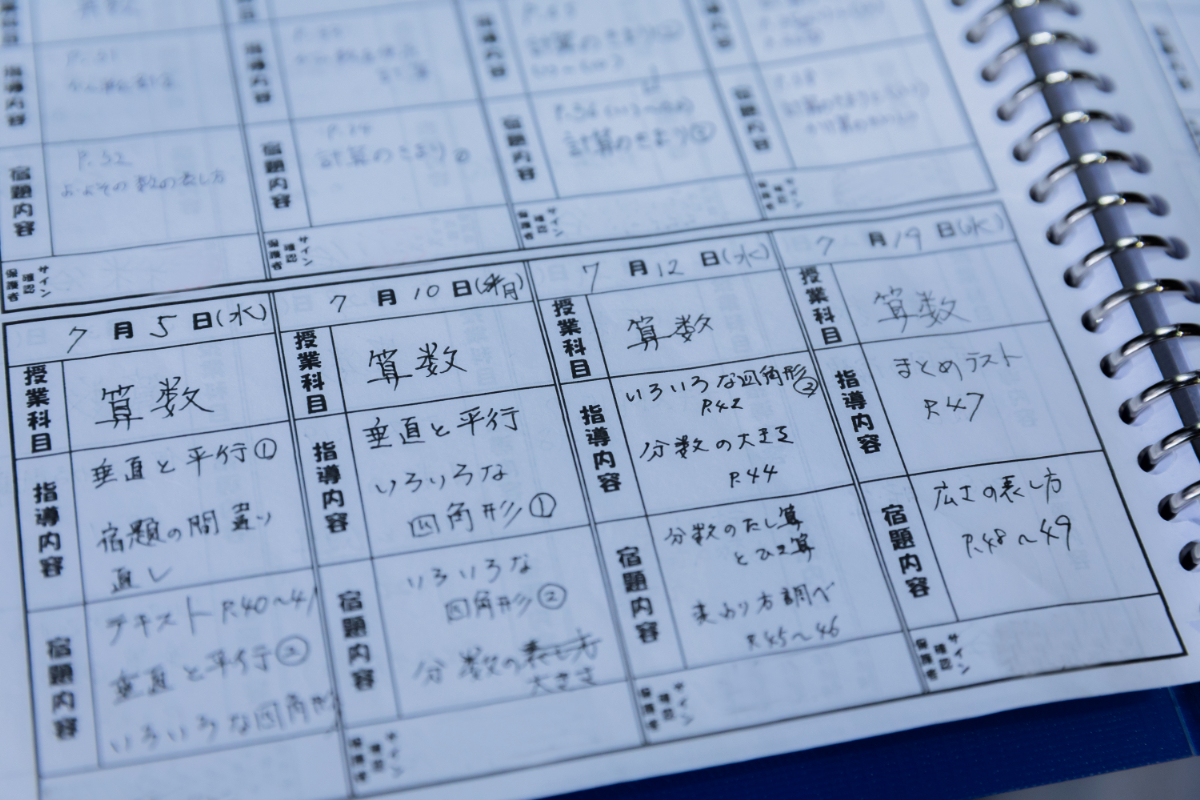 宿題内容
P.32
およその数の表し方
宿題内容
計算のきまり
宿題内容
計算のきまり②
宿題内容
保護者確認サイン
保護者確認サイン
保護者確認サイン
保護者確認サイン
7月5日(水)
授業科目
算数
指導内容
垂直と平行①
宿題の間違い
直し
宿題内容
テキスト P.40〜41
垂直と平行②
いろいろな四角形
7月10日(月)
授業科目
算数
指導内容
垂直と平行
いろいろな
四角形①
宿題内容
いろいろな
四角形②
分数の表し方
大きさ
保護者確認サイン
7月12日(水)
授業科目
算数
指導内容
いろいろな四角形②
P.42
分数の大きさ
P.44
宿題内容
分数のたし算
とひき算
変わり方調べ
P.45〜46
保護者確認サイン
7月19日(水)
授業科目
算数
指導内容
まとめテスト
P.47
宿題内容
広さの表し方
P.48〜49
保護者確認サイン